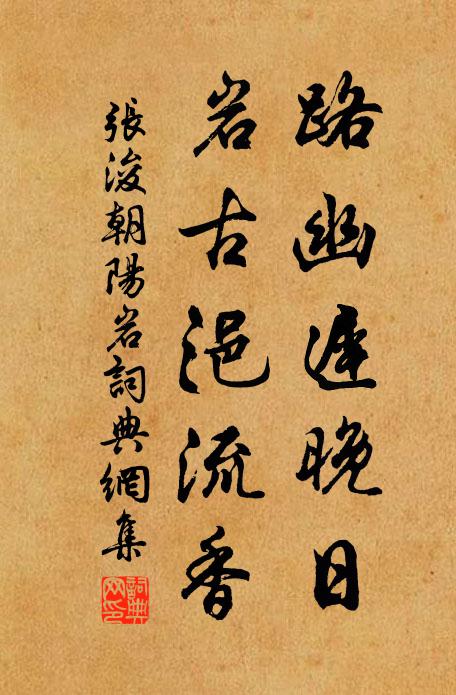 路幽遲晚日
岩古浥流香
張浚朝陽岩詞典網集
詞典網印